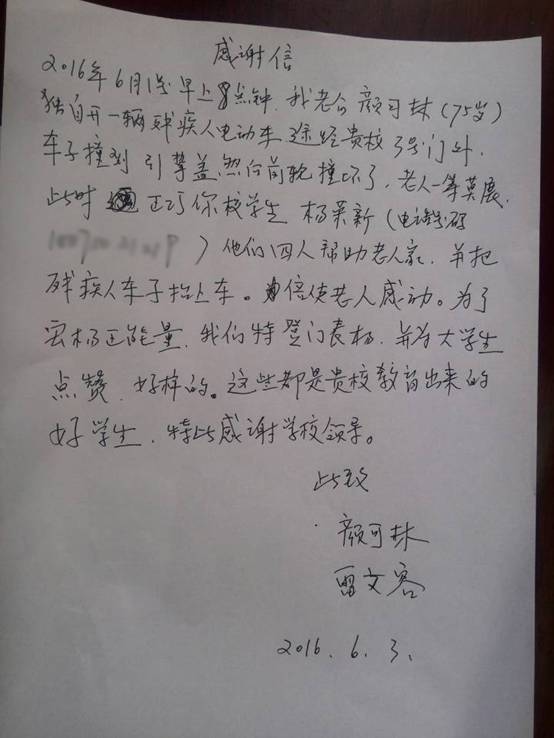 感谢信
2016年6月1号早上8点钟,我老公颜可林(75岁)
独自开一辆残疾人电动车途经贵校3号门外,
车子撞到引擎盖,前轮撞坏了,老人一筹莫展,
此时 正巧你校学生 杨 新(电话号码
)他们四人帮助老人家,并把
残疾人车子抬上车。倍使老人感动。为了
宏杨正能量,我们特登门表杨,并为大学生
点赞,好样的。这些都是贵校教育出来的
好学生,特此感谢学校领导。
此致
颜可林
雷文容
2016.6.3.